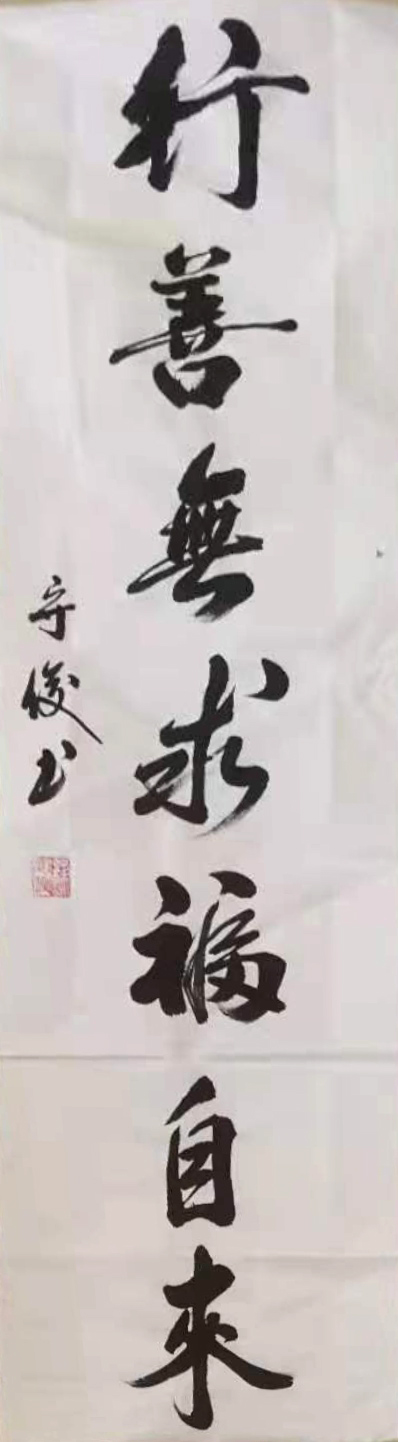 行善無求福自來
守俊书